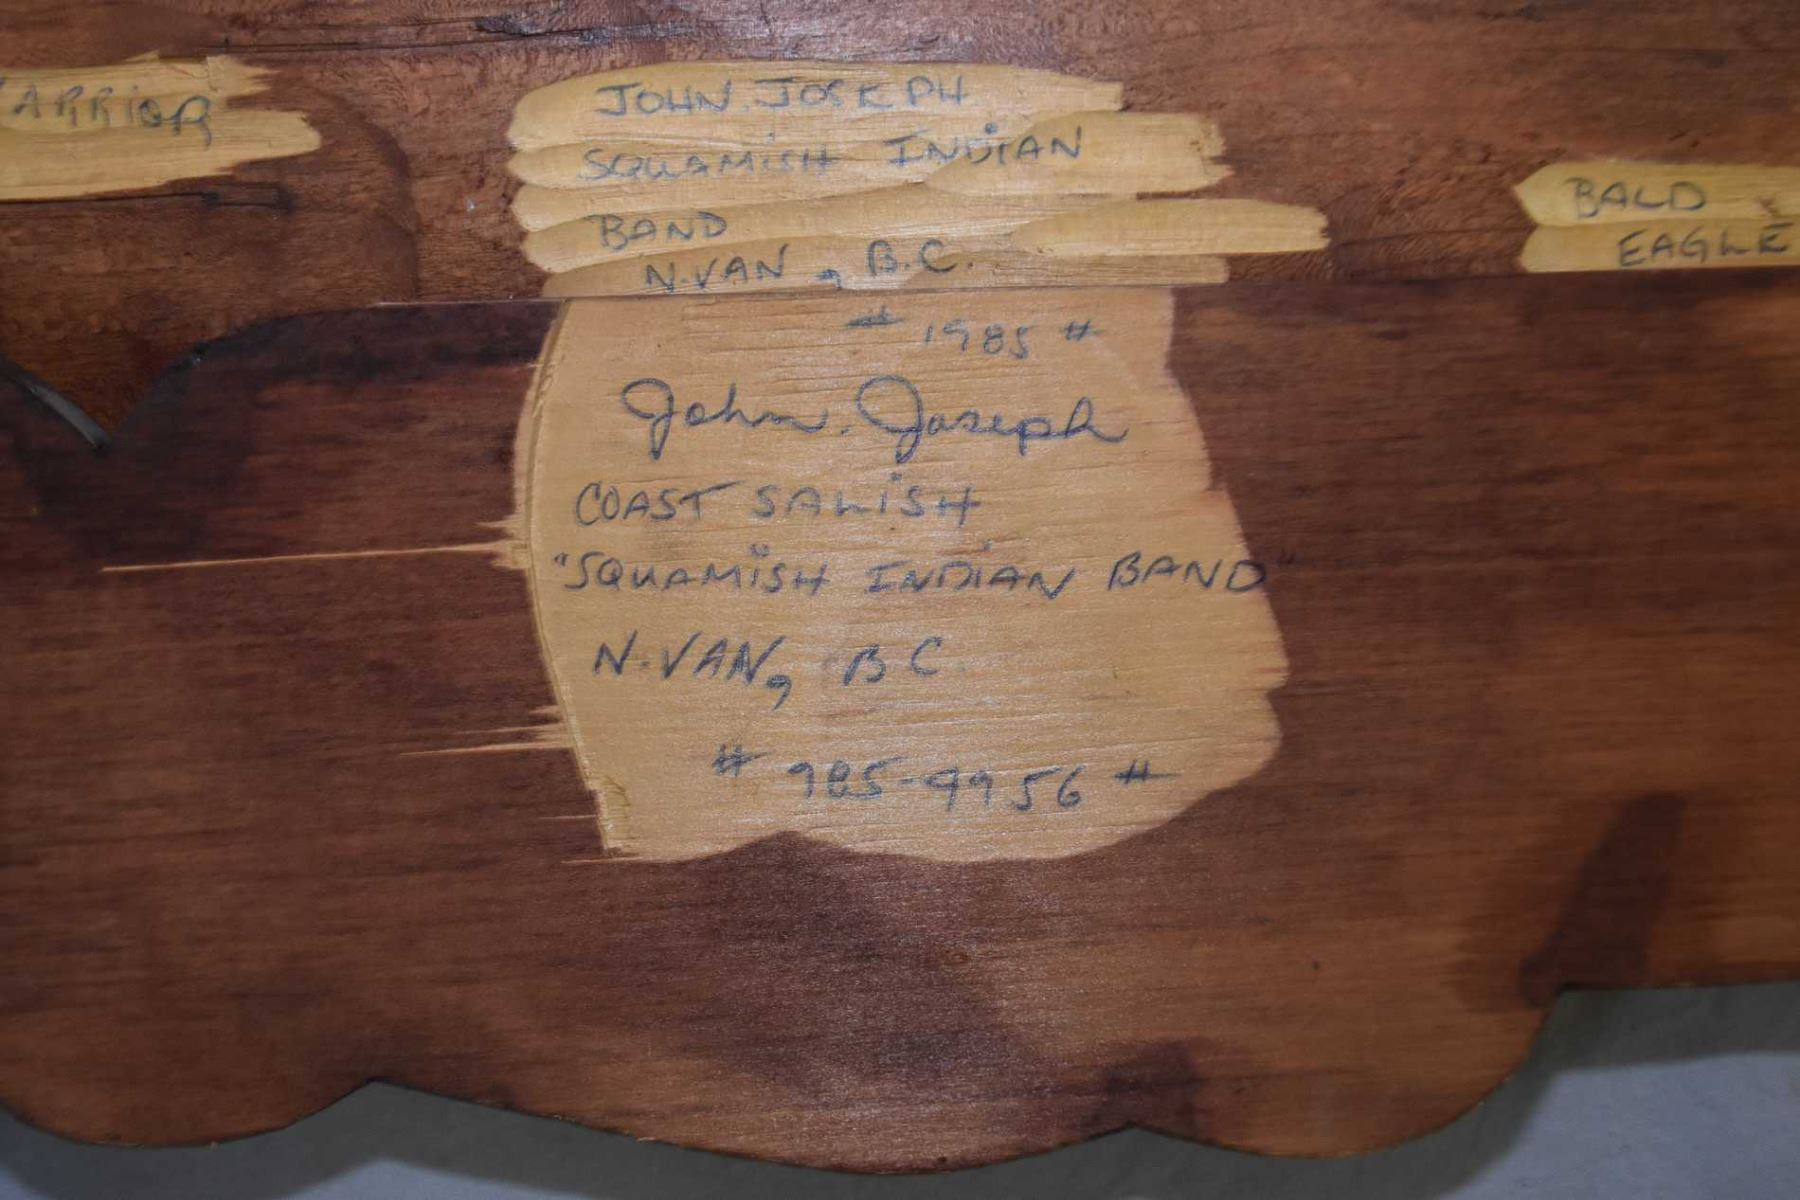 WARRIOR
JOHN. JOSEPH
SQUAMISH INDIAN
BAND
N.VAN, B.C.
BALD
EAGLE
# 1985 #
John. Joseph
COAST SALISH
"SQUAMISH INDIAN BAND"
N.VAN, B C.
# 985-9956 #